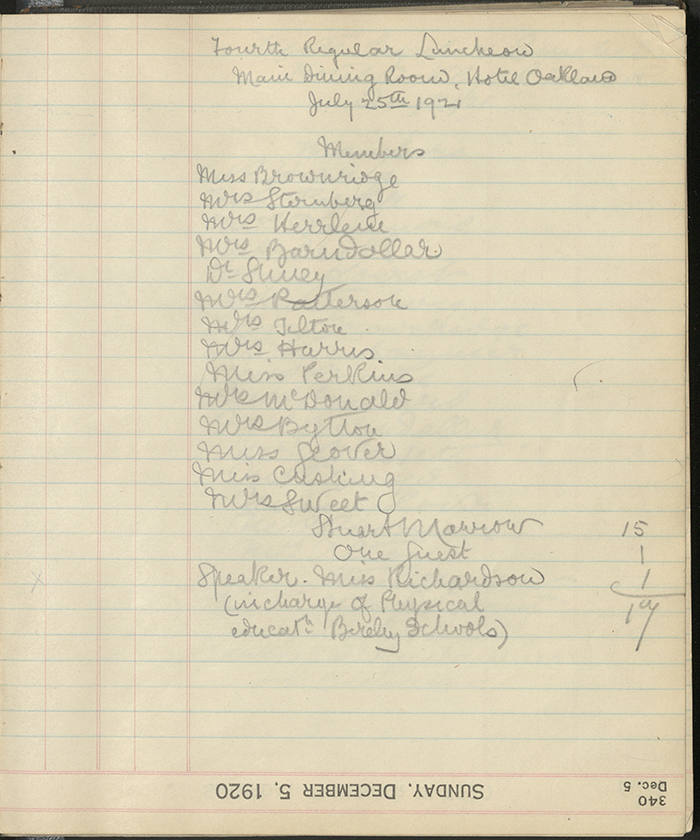 Fourth Regular Luncheon
Main Dining Room, Hotel Oakland
July 25th 1921
Members
Miss Brownridge
Mrs Sternberg
Mrs Herrlein
Mrs Barndollar
Dr Shuey
Mrs Patterson
Mrs Tilton
Mrs Harris.
Miss Perkins
Mrs McDonald
Mrs Bytton
Miss Glover
Miss Cushing
Mrs Sweet
Stuart Morrow 15
One Guest 1
Speaker. Miss Richardson 1
(in charge of Physical 17
educatn Berkly Schools)
SUNDAY, DECEMBER 5, 1920
340
Dec. 5